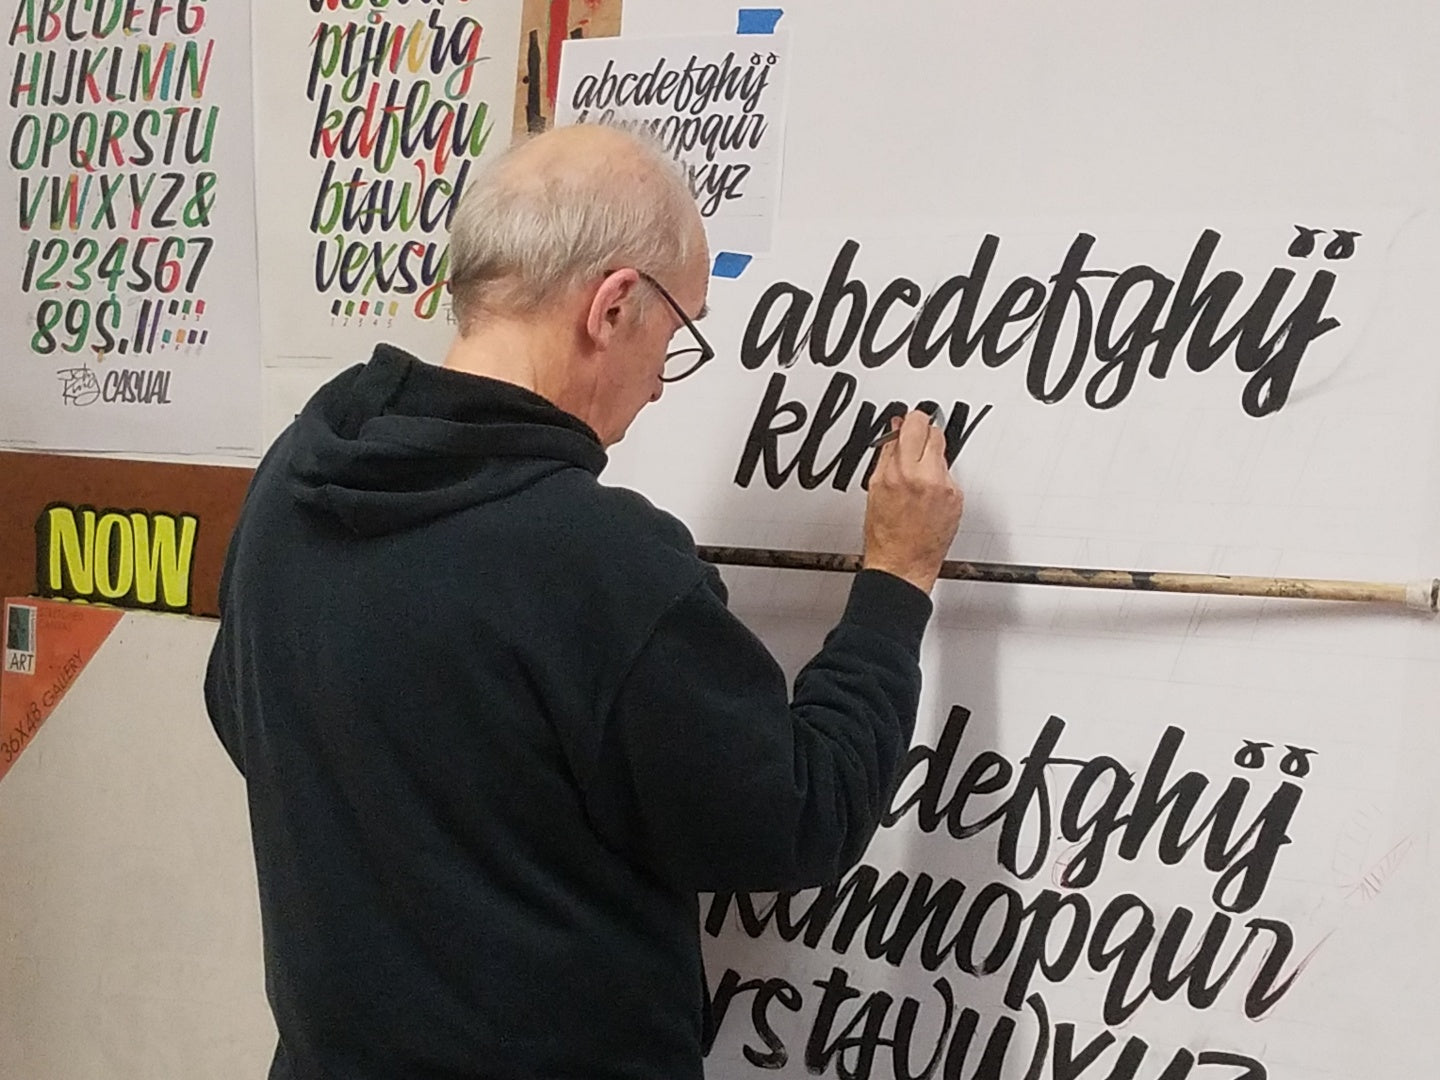 ABCDEFG
HIJKLMN
OPQRSTU
VWXYZ&
1234567
89$.!!
CASUAL
prijmrg
kdflqu
vexsy
abcdefghijÿ
xyz
abcdefghij
klm
NOW
ART
36X48 GALLERY
defghij
klmnopqur
rstsvwxyz